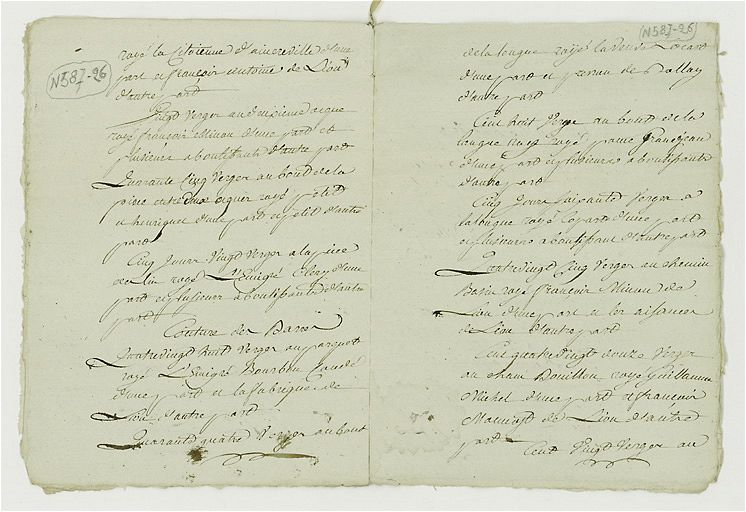 N587-26
rayé la Citoienne d'aincreville d'une
part et françois antoine de Lion
d'autre part
Vingt Verger au deuxieme
rayé françois Minau d'une part et
plusieurs aboutissants d'autre part
Quarante Cinq Verger au bout de la
piece rayé petit
a henriquet d'une part et petit d'autre
part
Cinq Jours Vingt Verger a la piece
de rayé L'Emigré Clery d'une
part et plusieurs aboutissants d'autre
part
Couture de Baroi
Quatrevingt huit Verger au parquet
rayé L'Emigré Bourbon Condé
d'une part et la fabrique de
Lion d'autre part
Quarante quatre Verger au bout
N587-26
de la longue rayé la Veuve
d'une part et de Dallay
d'autre part
Cent huit Verger au bout de la
longue rayé
d'une part et plusieurs aboutissants
d'autre part
Cinq Jours Soixante Verger a
la longue rayé d'une part
et plusieurs aboutissant d'autre part
Quatrevingt Cinq Verger au chemin
rayé françois Minau de
Lion d'une part et les aisances
de Lion d'autre part
Cent quatrevingt douze Verger
au Bouillon rayé Guillaume
Michel d'une part et françois
de Lion d'autre
part
Cent Vingt Verger au